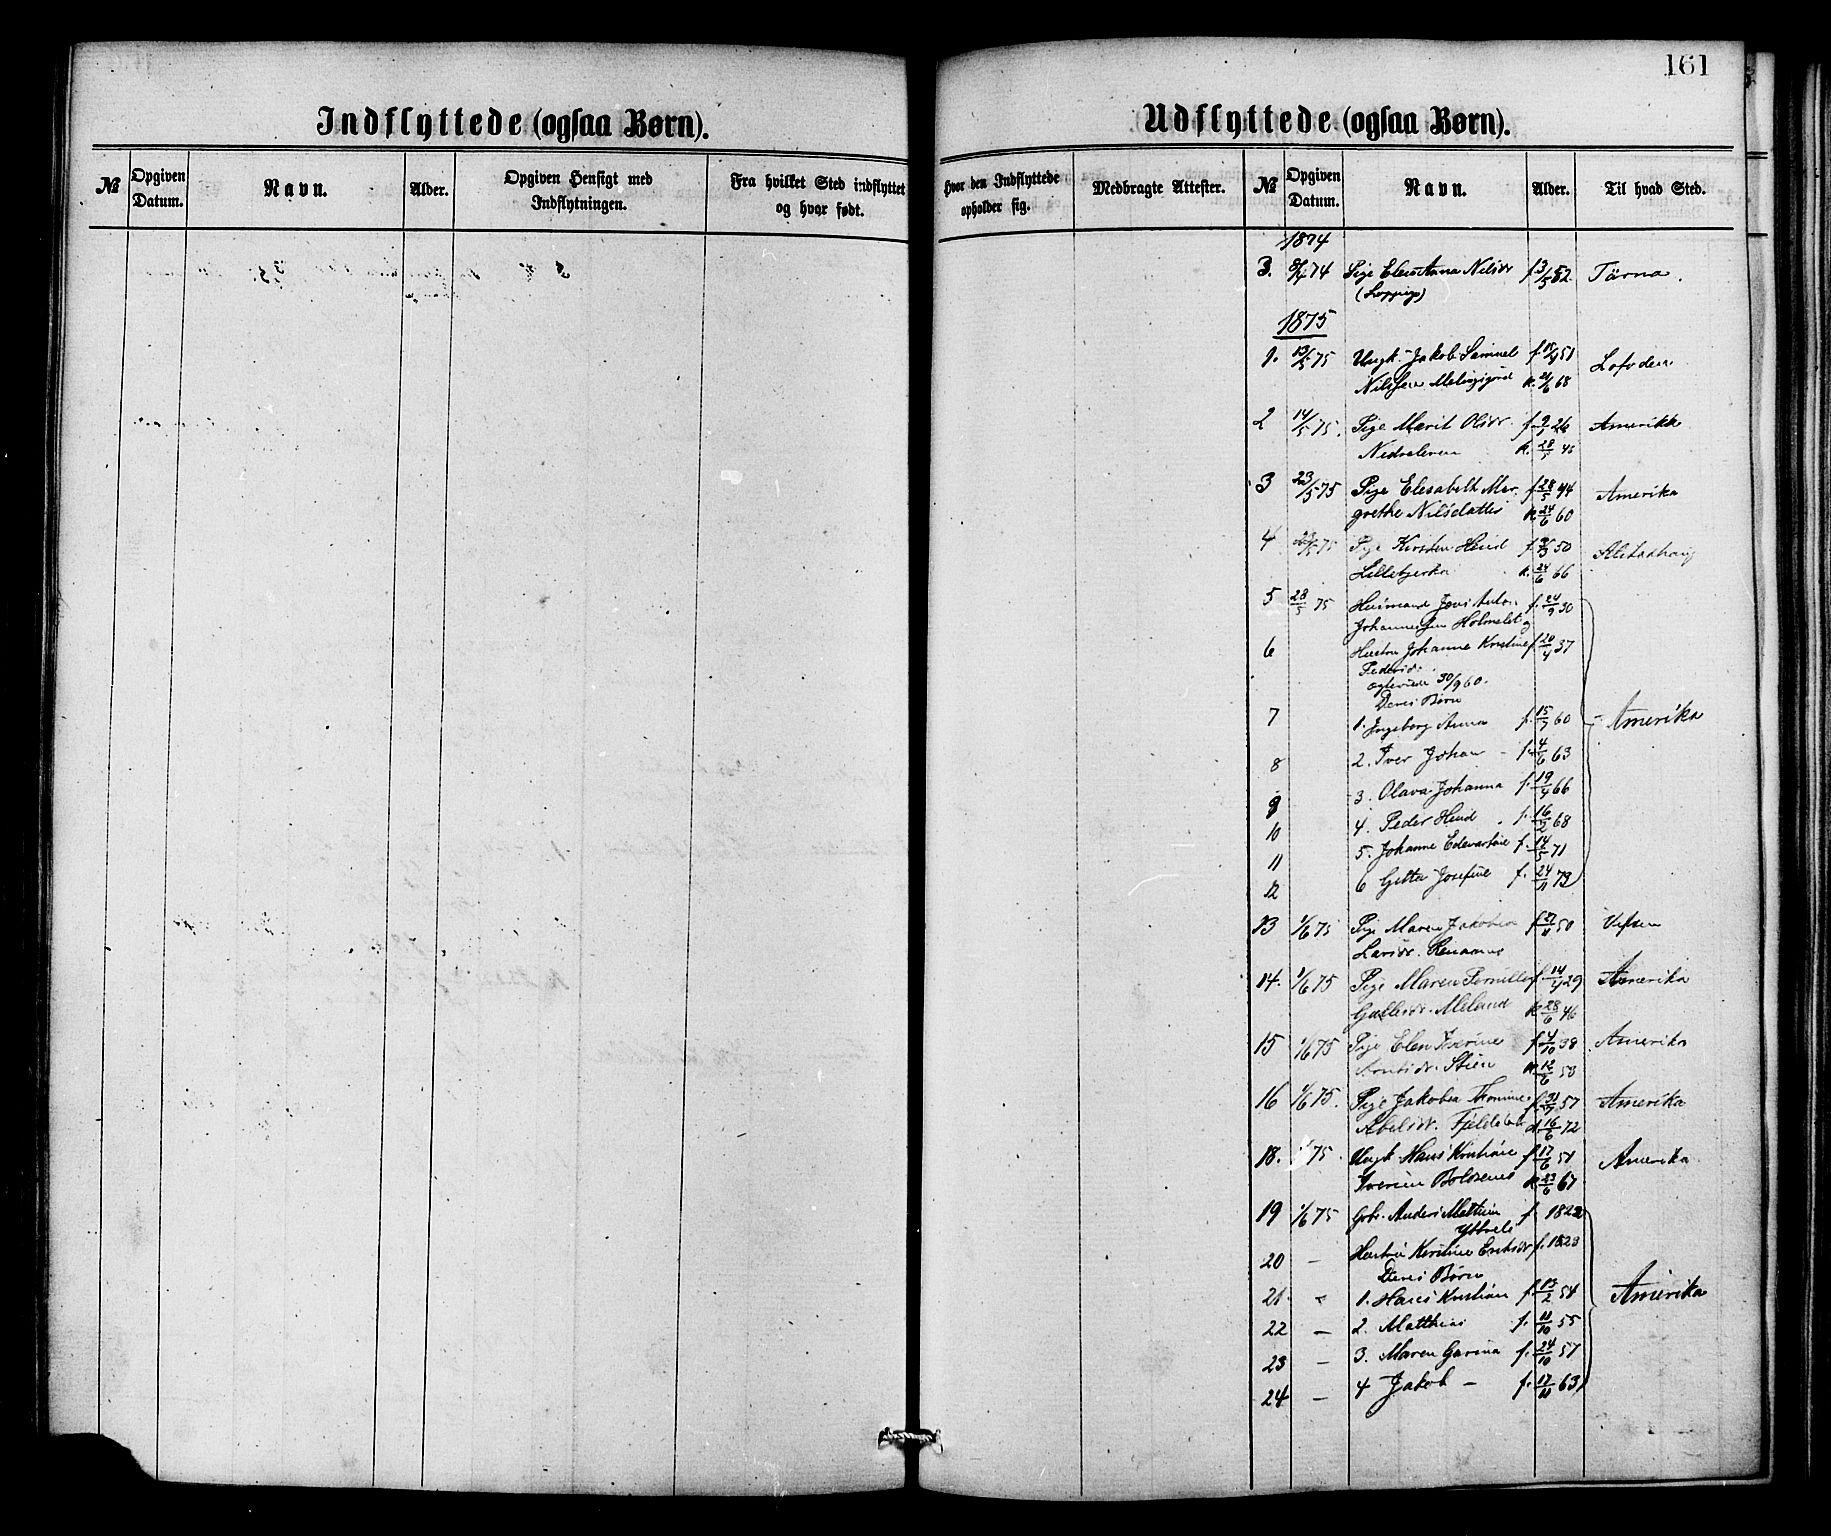 161
Indflyttede (ogsaa Børn).
Udflyttede (ogsaa Børn).
№ Opgiven Datum. Navn. Alder. Opgiven Hensigt med Indflytningen. Fra hvilket Sted indflyttet og hvor født. Hvor den Indflyttede opholder sig. Medbragte Attester. № Opgiven Datum. Navn. Alder. Til hvad Sted.
1874
3. 8/4 74 Pige Elen Anna Nilsdr f. 3/5 52 Tärna.
1875
1. 13/5 75 Ungk. Jakob Samuel f. 51 Lofoden
Nilssen k. 21/6 68
2 14/5 75. Pige Marit Olsdr. f. 26 Amerika
k. 28/ 45
3 23/5 75 Pige Elesabeth Mar. f. 28/5 44 Amerika
grethe Nilsdatter k. 24/6 60
4 23/5 75 Pige Kirsten Hind f. 50 Alstadhaug
Lillebjerka k. 24/6 66
5 28/5 75 Husmand Jens Anton f. 24/9 30
Johannessen Holmslet og
6 Hustru Johanne Kristine f. 20/4 37
Pedersdr.
egteviede 30/9 60.
Deres Børn
7 1. Ingeborg Anna f. 15/7 60 - Amerika
8 2. Iver Johan - f. 4/6 63
9 3. Olava Johanna f. 19/4 66
10 4. Peder Hind f. 16/2 68
11 5. Johanne Edevardine f. 14/5 71
12 6 Gitta Josefine f. 24/11 73
13 1/6 75 Pige Maren Jakobea f. 27/11 50 Vefsen
Larsdr.
14. 1/6 75 Pige Maren Pernille f. 14/4 29 Amerika
Meland k. 28/6 46
15 1/6 75 Pige Elen Iverine f. 4/10 38 Amerika
Arntsdr. Stien k. 12/6 53
16 1/6 75. Pige Jakobea Thomine f. 57 Amerika
Abelsdr. k. 16/6 72
18. 75. Ungk Hans Kristian f. 17/6 51 Amerika
k. 23/6 67
19 1/6 75 Gbr. Anders Matthias f. 1822
20 - Hustru Kirstine Eriksdr f. 1823
Deres Børn
21 - 1. Hans Kristian f. 13/2 54 Amerika
22 - 2. Matthias f. 11/10 55
23 - 3. Maren Garina f. 24/10 57
24 - 4 Jakob - f. 17/11 63